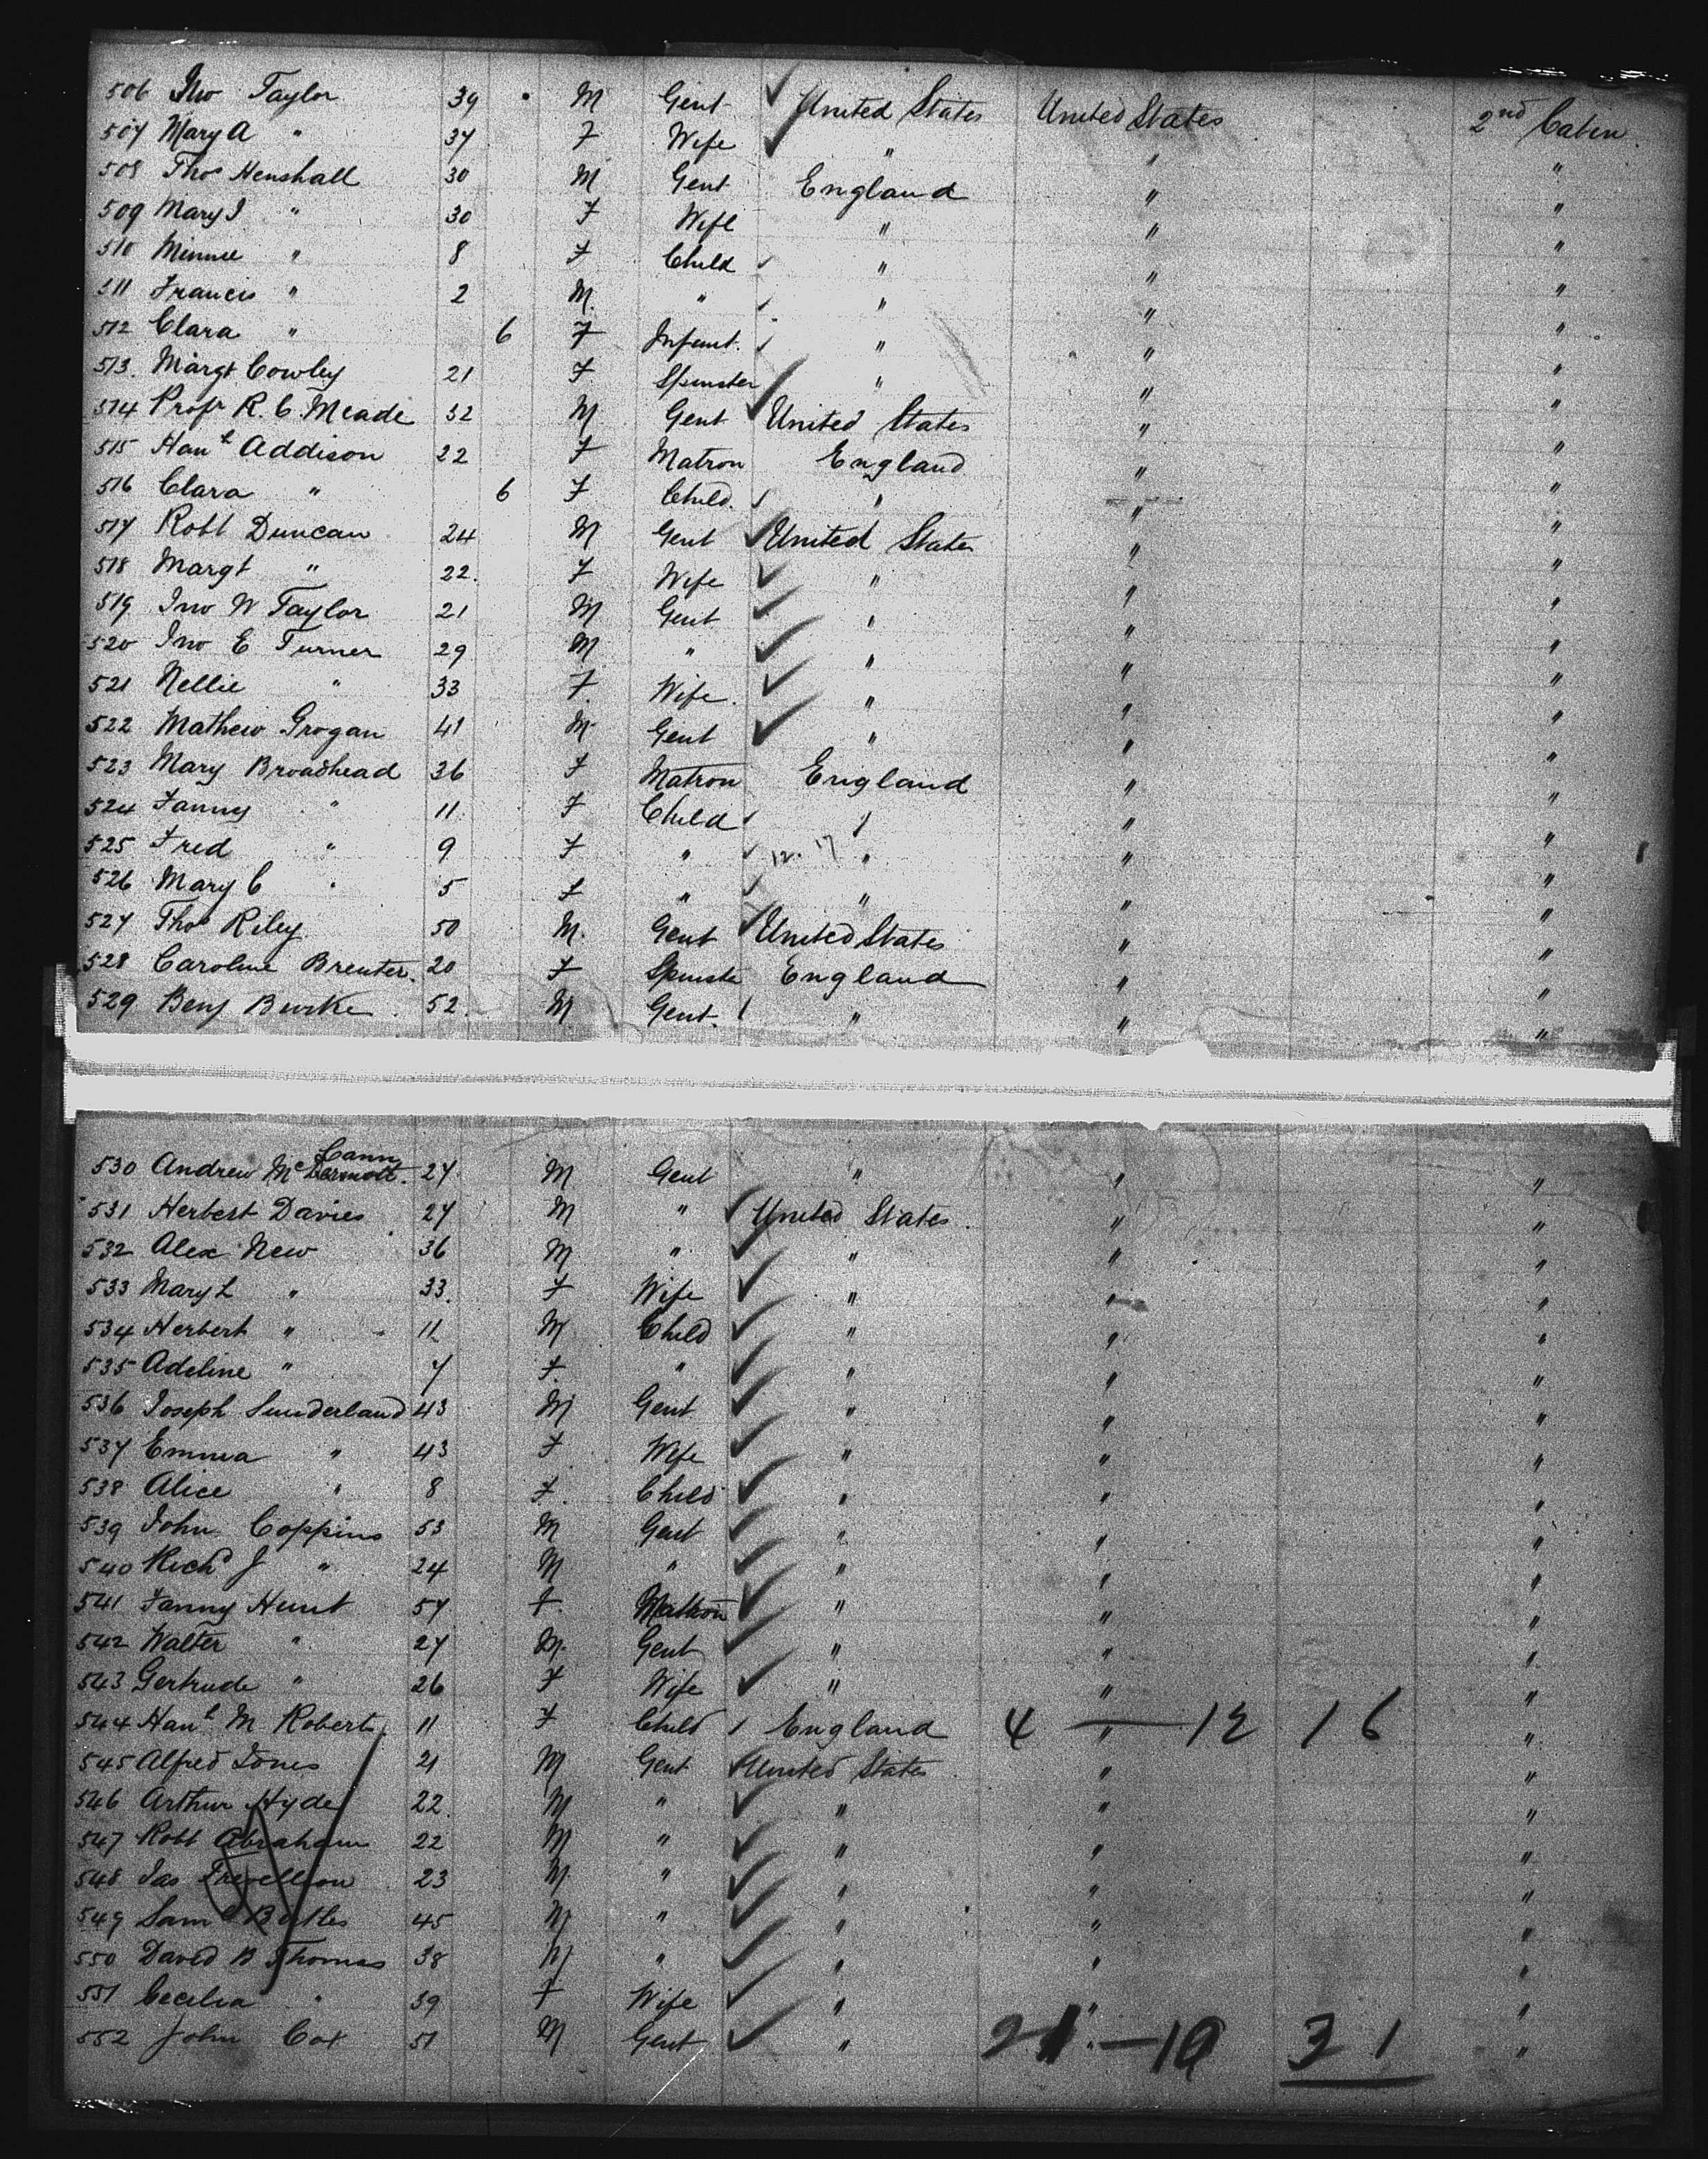 506 Jno Taylor 39 M Gent United States United States 2nd Cabin
507 Mary A " 37 F Wife " " "
508 Thos Henshall 30 M Gent England " "
509 Mary J " 30 F Wife " " "
510 Minnie " 8 F Child " " "
511 Francis " 2 M " " " "
512 Clara " 6 F Infant " " "
513 Margt Cowley 21 F Spinster " " "
514 Profr R. C. Meade 32 M Gent United States " "
515 Hanh Addison 22 F Matron England " "
516 Clara " 6 F Child " " "
517 Robt Duncan 24 M Gent United States " "
518 Margt " 22 F Wife " " "
519 Jno W Taylor 21 M Gent " " "
520 Jno E Turner 29 M " " " "
521 Nellie " 33 F Wife " " "
522 Mathew Grogan 41 M Gent " " "
523 Mary Broadhead 36 F Matron England " "
524 Fanny " 11 F Child " " "
525 Fred " 9 F " " " "
526 Mary C " 5 F " " " "
527 Thos Riley 50 M Gent United States " "
528 Caroline Breuter 20 F Spinste England " "
529 Benj Burke 52 M Gent " " "
Cann
530 Andrew McDermott 27 M Gent " " "
531 Herbert Davies 27 M " United States " "
532 Alex New 36 M " " " "
533 Mary L " 33 F Wife " " "
534 Herbert " 11 M Child " " "
535 Adeline " 7 F " " " "
536 Joseph Sunderland 43 M Gent " " "
537 Emma " 43 F Wife " " "
538 Alice " 8 F Child " " "
539 John Coppins 53 M Gent " " "
540 Richd J " 24 M " " " "
541 Fanny Hunt 57 F Matron " " "
542 Walter " 27 M Gent " " "
543 Gertrude " 26 F Wife " " "
544 Hanh M Roberts 11 F Child England 4 — 12 16 " "
545 Alfred Jones 21 M Gent United States " "
546 Arthur Hyde 22 M " " " "
547 Robt Abraham 22 M " " " "
548 Jas Trevellion 23 M " " " "
549 Saml 45 M " " " "
550 David B Thomas 38 M " " " "
551 Cecelia " 39 F Wife " " "
552 John Cox 51 M Gent " " 21 — 10 31 "